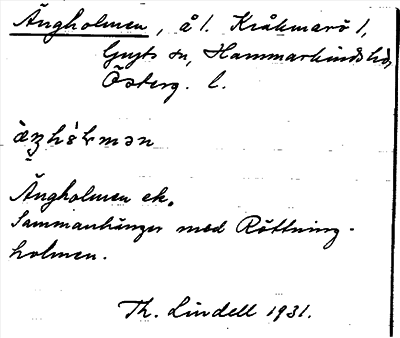 Ängholmen, å l. Kråkmarö 1,
Gryts sn, Hammarkinds hd,
Österg. l.
Ängholmen ek.
Sammanhänger med Röttning-
holmen.
Th. Lindell 1931.